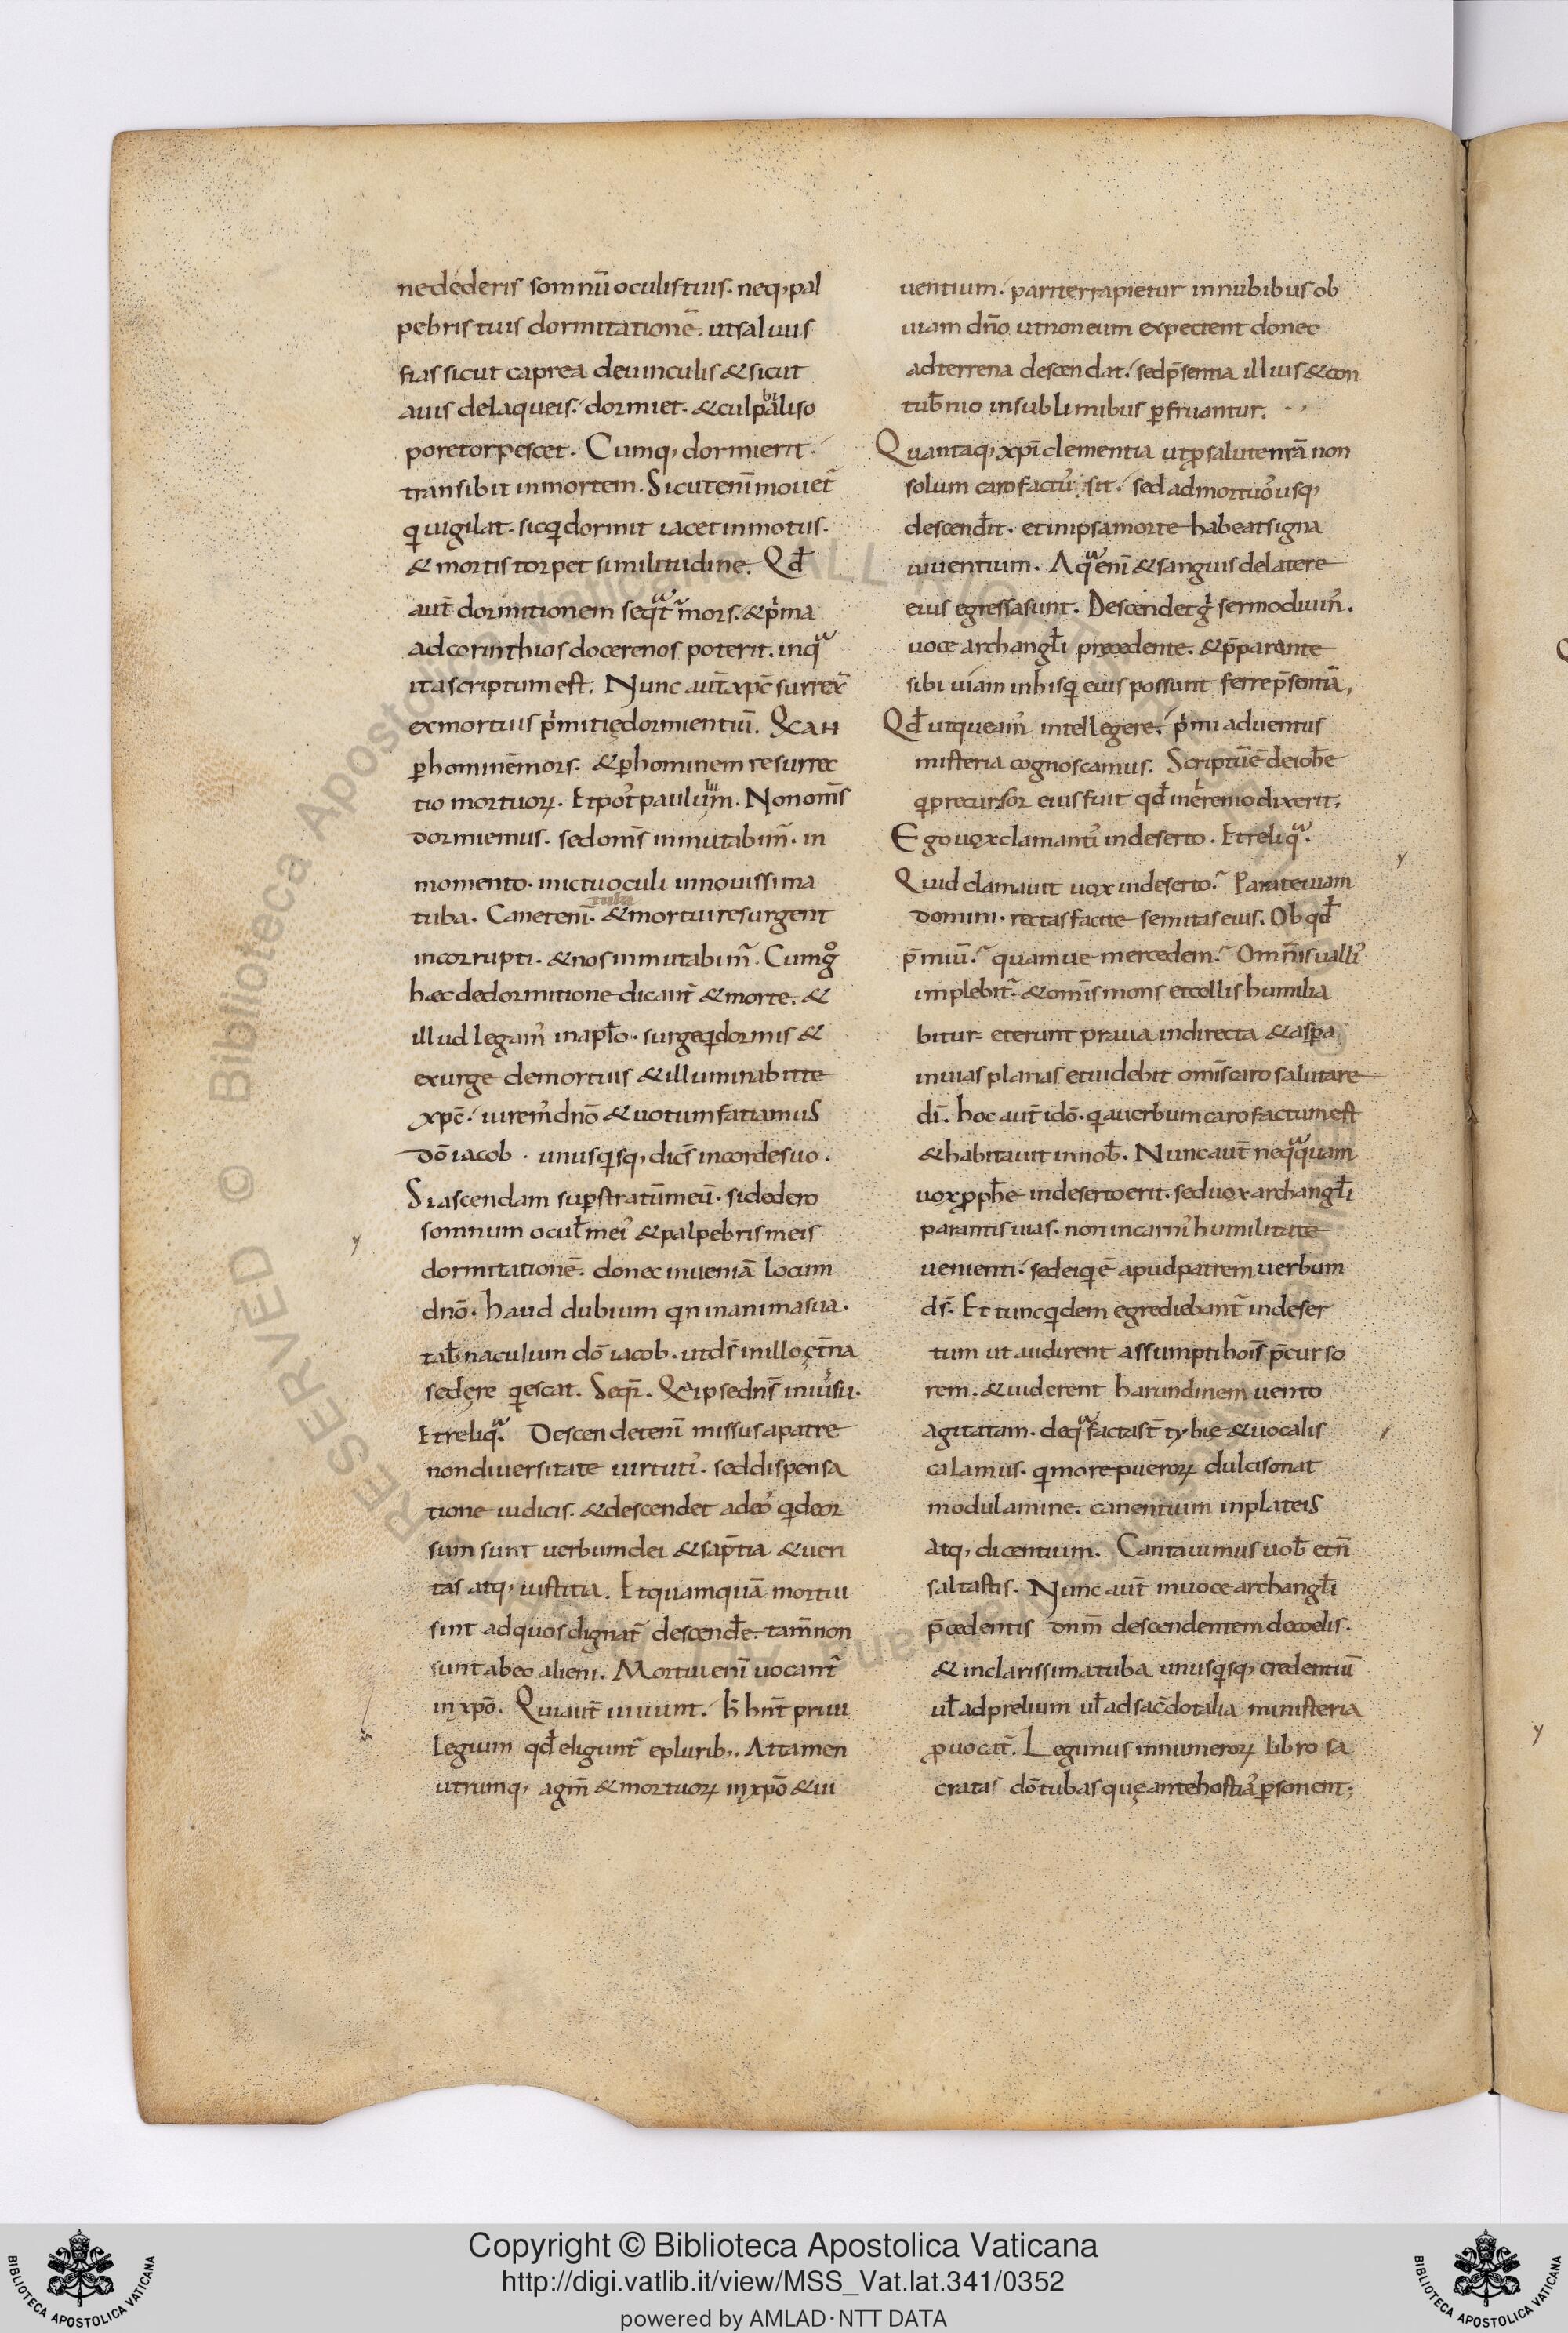 ne dederis somnū oculis tuis. neq; pal
pebris tuis dormitationē. ut saluus
fias sicut caprea de uinculis & sicut
auis de laqueis. dormiet. & culpabili so
pore torpescet. Cumq; dormierit.
transibit in mortem. Sicut enī mouet̄
q uigilat. sic q dormit iacet inmotus.
& mortis torpet similitudine. Qđ
aut̄ dormitionem seqt̄ mors. & pma
ad corinthios docere nos poterit. in qua
ita scriptum est. Nunc aut̄ xp̄c surrex̄
ex mortuis pmitię dormientiū.
p hominē mors. & p hominem resurrec
tio mortuoꝝ. Et pot paulum. Non om̄s
dormiemus. sed om̄s inmutabim̄. in
momento. in ictu oculi in nouissima
tuba. Canet enī. & mortui resurgent
incorrupti. & nos inmutabim̄. Cum g
hęc de dormitione dicant̄ & morte. &
illud legam in apło. surge q dormis &
exurge de mortuis & illuminabit te
xp̄c. uirem dn̄o & uotum fatiamus
dō iacob. unusqsq; dic̄s in corde suo.
Si ascendam sup stratūmeū. si dedero
somnum oculł mei & palpebris meis
dormitationē. donec inueniā locum
dn̄o. haud dubium qn in anima sua.
tab̄naculum dō iacob. ut ds̄ in illo ęt̄na
sedere qescat. Seqr̄. Q ipse dn̄s in iusu.
Et reliqua. Descendet enī missus a patre
non diuersitate uirtuti. sed dispensa
tione iudicis. & descendet ad eo q deor
sum sunt uerbum dei & sap̄tia & ueri
tas atq; iustitia. Et quamquā mortui
sint ad quos dignat̄ descendere. tam̄ non
sunt ab eo alieni. Mortui enī uocant̄
in xp̄o. Qui aut̄ uiuunt. h̄ hnt̄ priui
legium qđ eligunt̄ e plurib;. Attamen
utrumq; agm̄ & mortuoꝝ in xp̄o & ui
uentium. pariter rapietur in nubibus ob
uiam dn̄o ut non eum expectent donec
ad terrena descendat. sed p̄sentia illius & con
tub̄nio in sublimibus pfruantur.
Quantaq; xp̄i clementia ut p salute nrā non
solum caro factu sit. sed ad mortuo usq;
descendit. et in ipsa morte habeat signa
uiuentium. Aqua enī & sanguis de latere
eius egressa sunt. Descendet g sermo diuin.
uoce archangłi precedente. & p̄parante
sibi uiam in his q eius possunt ferre p̄sentiā,
Qđ ut queam intellegere. pmi aduentus
misteria cognoscamus. Scriptū ē de ioh̄e
q precursor eius fuit qđ in eremo dixerit.
Ego uox clamanti in deserto. Et reliqua.
Quid clamauit uox in deserto. Parate uiam
domini. rectas facite semitas eius. Ob qđ
p̄miū. quamue mercedem. Omn̄is ualli
implebit̄. & om̄is mons et collis humilia
bitur. et erunt praua in directa & aspa
in uias planas et uidebit om̄is caro salutare
dī. hoc aut̄ idō. q a uerbum caro factum est
& habitauit in nob̄. Nunc aut̄ nequaquam
uox pph̄e in deserto erit. sed uox archangłi
parantis uias. non in carni humilitate
uenienti. sed ei q ē apud patrem uerbum
ds̄. Et tunc qdem egrediebant̄ in deser
tum ut audirent assumpti hois̄ p̄curso
rem. & uiderent harundinem uento
agitatam. de qua facta st̄ tybię & uocalis
calamus. q more pueroꝝ dulci sonat
modulamine. canentium in plateis
atq; dicentium. Cantauimus uob̄ et n̄
saltastis. Nunc aut̄ in uoce archangłi
p̄cedentis dnm̄ descendentem de coelis.
& in clarissima tuba unusqsq; credentiū
uł ad prelium uł ad sac̄dotalia ministeria
puocat̄. Legimus in numeroꝝ libro sa
cratas dō tubas quę ante hostia psonent;
Copyright © Biblioteca Apostolica Vaticana
http://digi.vatlib.it/view/MSS_Vat.lat.341/0352
powered by AMLAD·NTT DATA
BIBLIOTECA APOSTOLICA VATICANA
BIBLIOTECA APOSTOLICA VATICANA